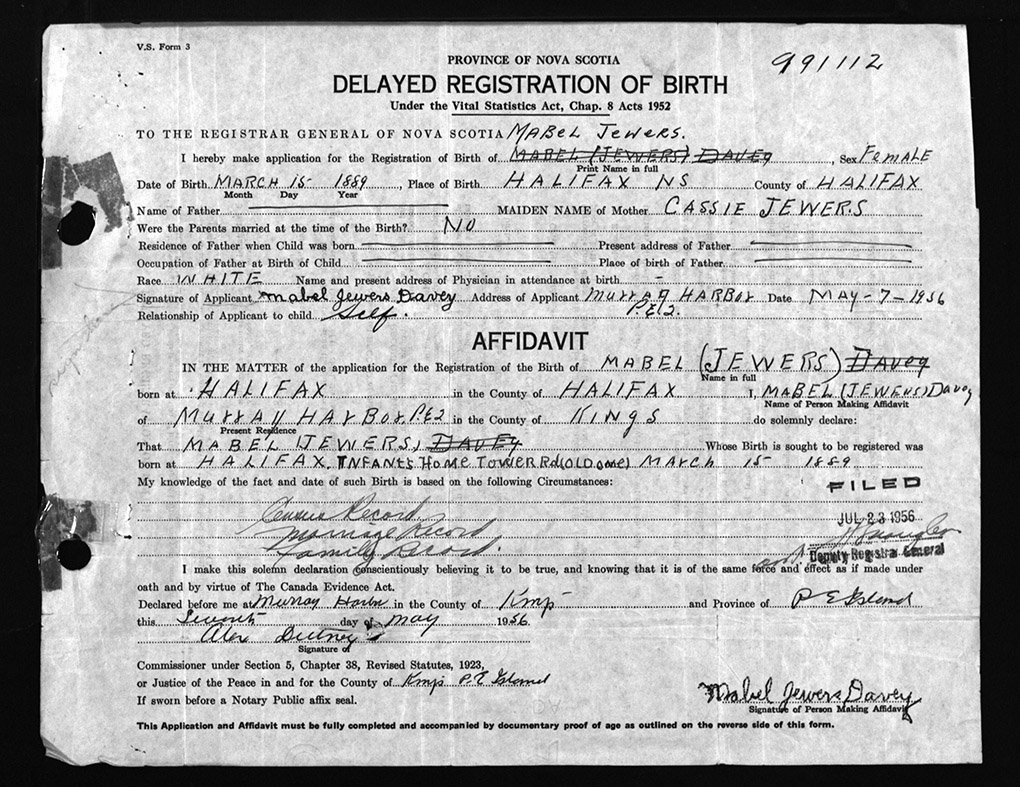 V.S. Form 3
991112
PROVINCE OF NOVA SCOTIA
DELAYED REGISTRATION OF BIRTH
Under the Vital Statistics Act, Chap. 8 Acts 1952
TO THE REGISTRAR GENERAL OF NOVA SCOTIA MABEL JEWERS.
I hereby make application for the Registration of Birth of MABEL (JEWERS) DAVEY, Sex FEMALE
Print Name in full
Date of Birth MARCH 15 1889, Place of Birth HALIFAX NS County of HALIFAX
Month Day Year
Name of Father MAIDEN NAME of Mother CASSIE JEWERS
Were the Parents married at the time of the Birth? NO
Residence of Father when Child was born Present address of Father
Occupation of Father at Birth of Child Place of birth of Father
Race WHITE Name and present address of Physician in attendance at birth -
Signature of Applicant Mabel Jewers Davey Address of Applicant MURRAY HARBOR Date MAY-7-1956
P.E.I.
Relationship of Applicant to child Self.
AFFIDAVIT
IN THE MATTER of the application for the Registration of the Birth of MABEL (JEWERS) DAVEY
Name in full
born at HALIFAX in the County of HALIFAX I, MABEL (JEWERS) Davey
Name of Person Making Affidavit
of MURRAY HARBOR P.E.I. in the County of KINGS do solemnly declare:
Present Residence
That MABEL (JEWERS) DAVEY Whose Birth is sought to be registered was
born at HALIFAX. INFANTS HOME TOWER Rd (OLD ONE) MARCH 15 1889
My knowledge of the fact and date of such Birth is based on the following Circumstances:
FILED
Census Record
JUL 23 1956
Marriage Record
Family Record.
Deputy Registrar General
I make this solemn declaration conscientiously believing it to be true, and knowing that it is of the same force and effect as if made under
oath and by virtue of The Canada Evidence Act.
Declared before me at Murray Harbor in the County of Kings and Province of P E Island
this Seventh day of May 1956
Alex
Signature of
Commissioner under Section 5, Chapter 38, Revised Statutes, 1923,
or Justice of the Peace in and for the County of Kings P E Island
If sworn before a Notary Public affix seal.
Mabel Jewers Davey
Signature of Person Making Affidavit
This Application and Affidavit must be fully completed and accompanied by documentary proof of age as outlined on the reverse side of this form.